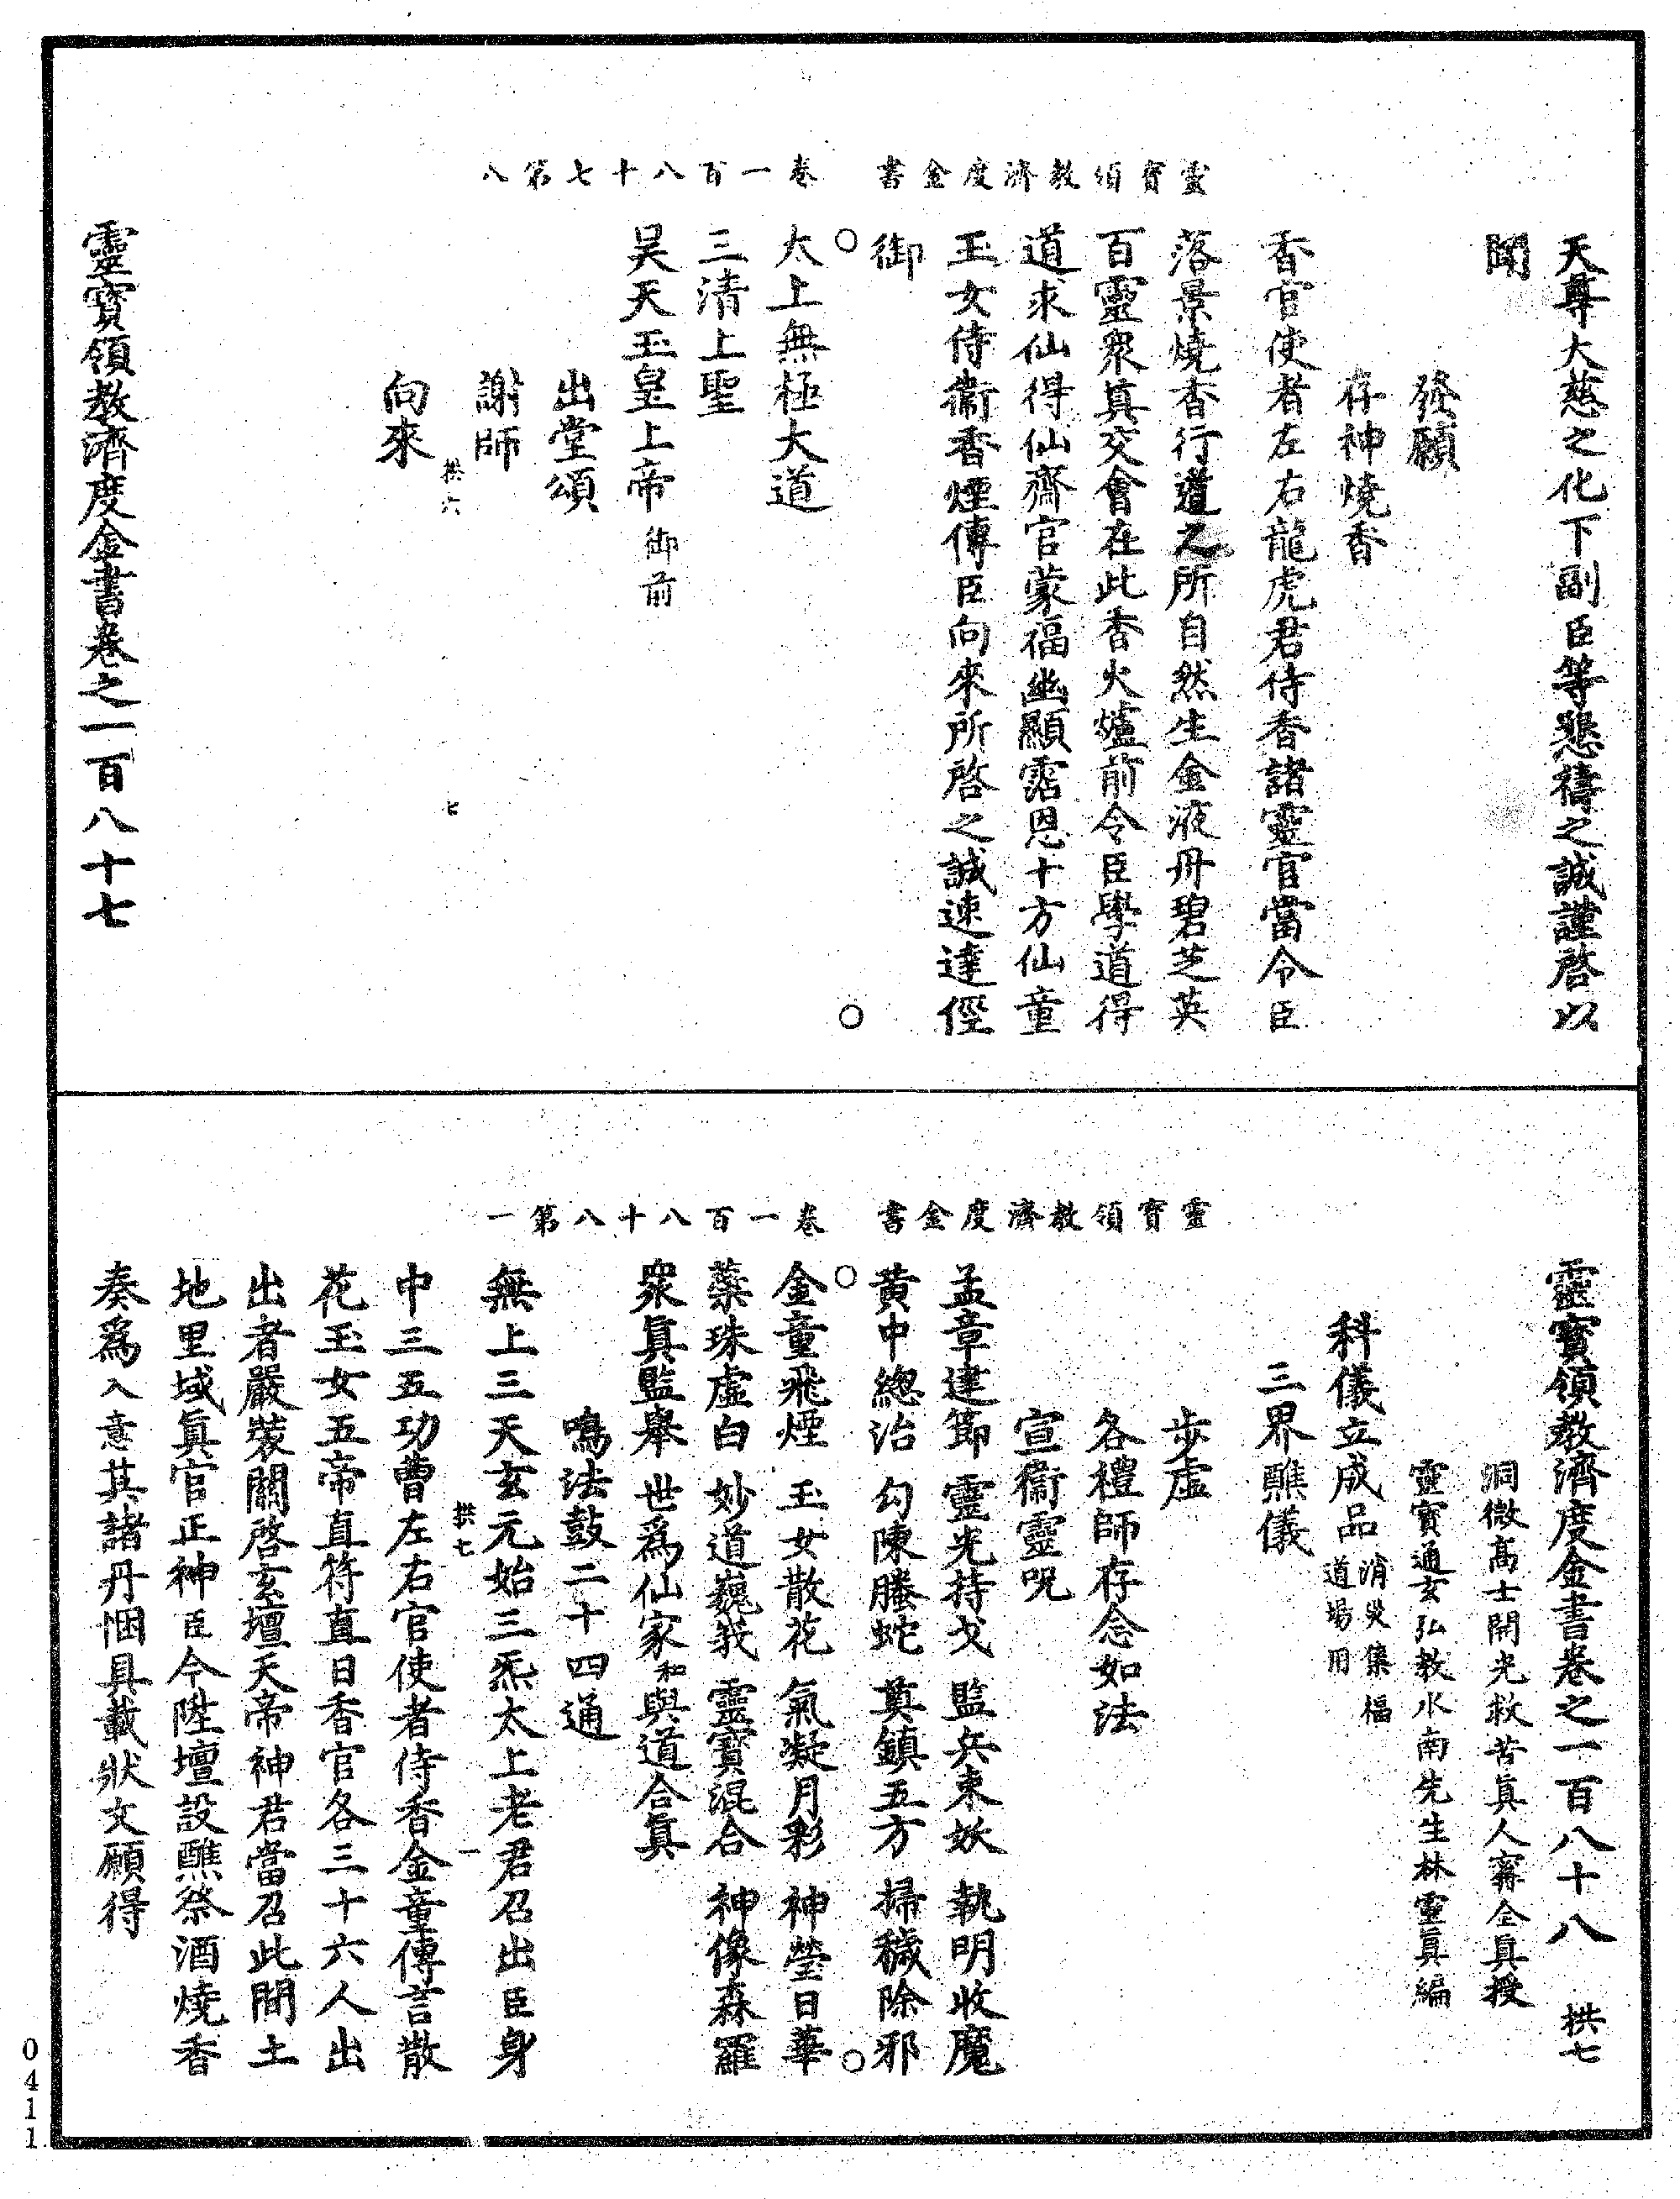 靈寶領教濟度金書　卷一百八十七第八
天尊大慈之化下副臣等懇禱之誠謹啓以
聞
發願
存神燒香
香官使者左右龍虎君侍香諸靈官當令臣
落景燒香行道之所自然生金液丹碧芝英
百靈衆真交會在此香火爐前令臣學道得
道求仙得仙齋官蒙福幽顯霑恩十方仙童
玉女侍衞香煙傳臣向來所啓之誠速達徑
御
○　○
太上無極大道
三清上聖
昊天玉皇上帝御前
出堂頌
謝師
拱六　七
向來
靈寶領教濟度金書卷之一百八十七
靈寶領教濟度金書　卷一百八十八第一
靈寶領教濟度金書卷之一百八十八　拱七
洞微高士開光救苦真人甯全真授
靈寶通玄弘教水南先生林靈真編
科儀立成品消災集福道場用
三界醮儀
步虛
各禮師存念如法
宣衞靈呪
孟章建節　靈光持戈　監兵束妖　執明收魔
黃中總治　勾陳螣蛇　奠鎮五方　掃穢除邪
○　○
金童飛煙　玉女散花　氣凝月彩　神瑩日華
蘂珠虛白　妙道巍峩　靈寶混合　神像森羅
衆真監舉　世爲仙家和與道合真
鳴法鼓二十四通
無上三天玄元始三炁太上老君召出臣身
拱七　一
中三五功曹左右官使者侍香金童傳言散
花玉女五帝直符直日香官各三十六人出
出者嚴裝關啓玄壇天帝神君當召此間土
地里域真官正神臣今陞壇設醮祭酒燒香
奏爲入意其諸丹悃具載狀文願得
0411